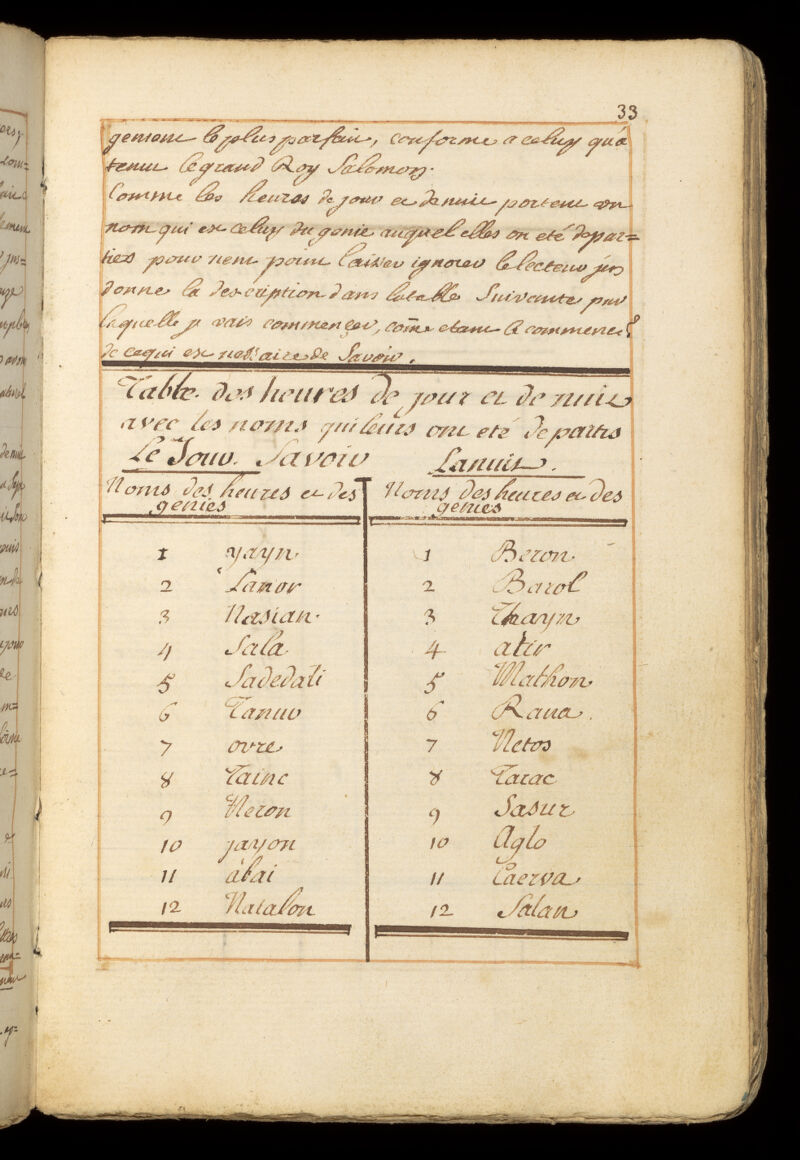 33
gement le plus parfait, conforme a celuy qu'a
tenu le grand Roy Salomon.
Comme les heures de jour et de nuit portent un
nom qui est celuy du genie auquel elles on eté depar=
ties pour nent point laisser ignorer le lecteur jen
donne la description dans latable Suivante par
laquelle je vais commencer, com̄e etant le commence.t
de cequi est nessaire de Savoir.
Table des heures de jour et de nuit
avec les noms quileurs ont eté departis
Le Jour. Savoir Lanuit.
Noms des heures et des Noms des heures et des
genies genies
1 yayn 1 Beron
2 Lanor 2 Barol
3 Nasian 3 Thayn
4 Sala 4 atir
5 Sadedali 5 Mathon
6 Tanur 6 Rana
7 ovre 7 Netos
8 Tainc 8 Tarac
9 Neron 9 Sasur
10 jayon 10 Aglo
11 abai 11 Caerva
12 Natalon 12 Salan